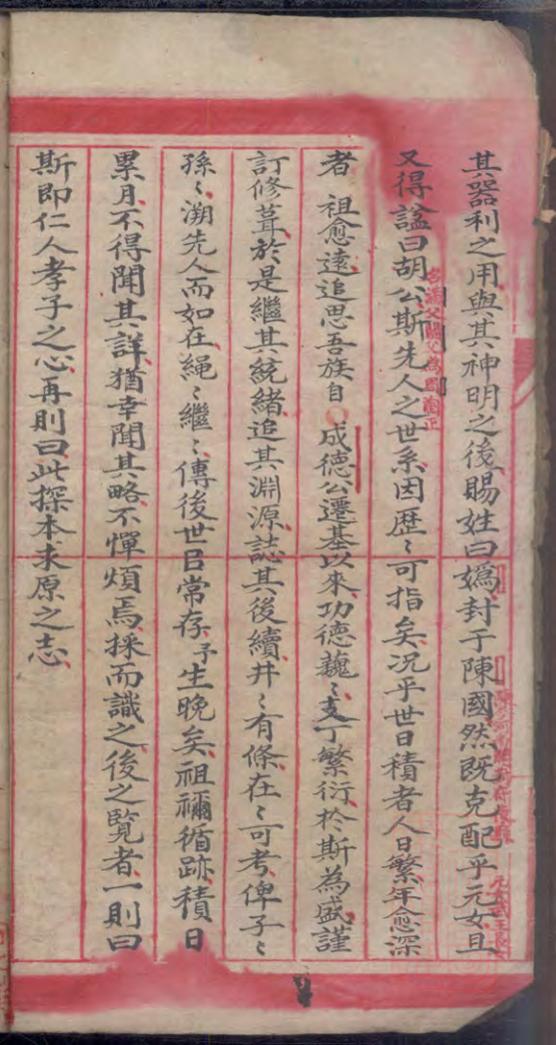 其器利之用與其神明之後賜姓曰媯封于陳國然既克配乎元女且
又得諡曰胡公斯先人之世系因歷〻可指矣况乎世日積者人日繁年愈深
者 祖愈遠追思吾族自 成德公遷基以來功德巍〻支丁繁衍於斯為盛謹
訂修葺於是繼其統緒追其淵源誌其後續井〻有條在〻可考俾子〻
孫〻溯先人而如在繩〻繼〻傳後世㠯常存予生晚矣祖禰循跡積日
累月不得聞其詳猶幸聞其略不憚煩焉採而識之後之覧者一則曰
斯即仁人孝子之心再則曰此探本求原之志